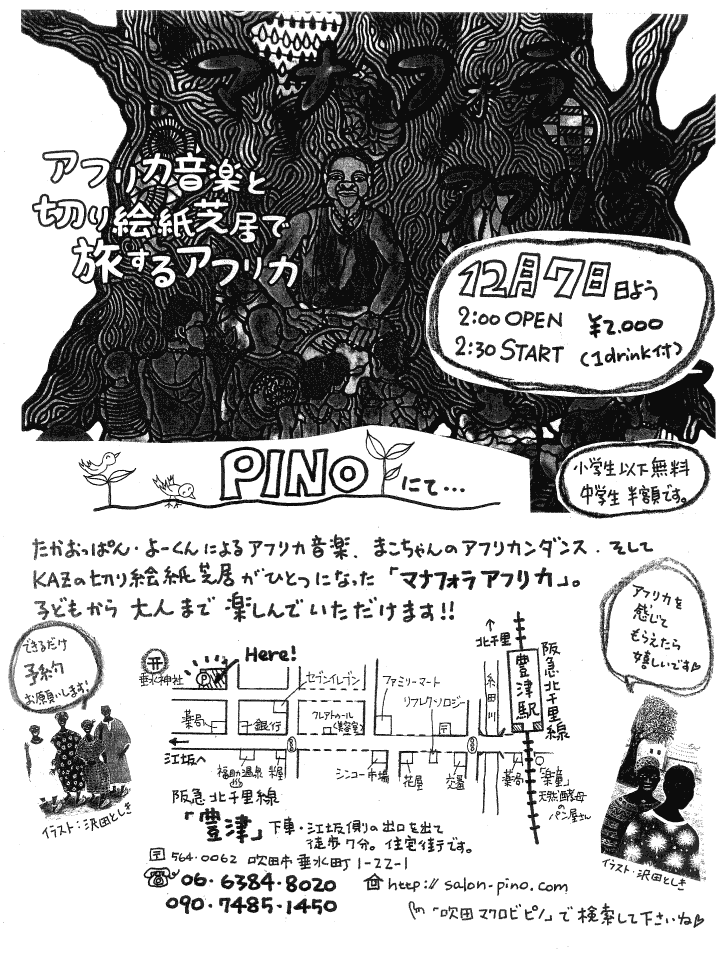 マナフォラ
アフリカ
アフリカ音楽と
切り絵紙芝居で
旅するアフリカ
12月7日 日よう
2:00 OPEN ¥2.000
2:30 START (1drink付)
PINOにて...
小学生以下無料
中学生半額です。
たかおっぱん・よーくんによるアフリカ音楽、まこちゃんのアフリカンダンス．そして
KAZの切り絵紙芝居がひとつになった「マナフォラアフリカ」。
子どもから大人まで楽しんでいただけます!!
アフリカを
感じて
もらえたら
嬉しいです
できるだけ
予約
お願いします!
イラスト・沢田としき
垂水神社
P
Here!
セブンイレブン
ファミリーマート
リフレクソロジー
糸田川
北千里
豊津駅
阪急北千里線
薬局
銀行
(美容室)
江坂へ
福助温泉
シンコー市場
花屋
交番
薬局
「楽童」
天然酵母の
パン屋さん
イラスト・沢田としき
阪急北千里線
「豊津」下車・江坂側の出口を出て
徒歩7分。住宅街です。
〒564-0062 吹田市垂水町1-22-1
06・6384・8020
090・7485・1450
http://salon-pino.com
「吹田マクロビピノ」で検索して下さいね